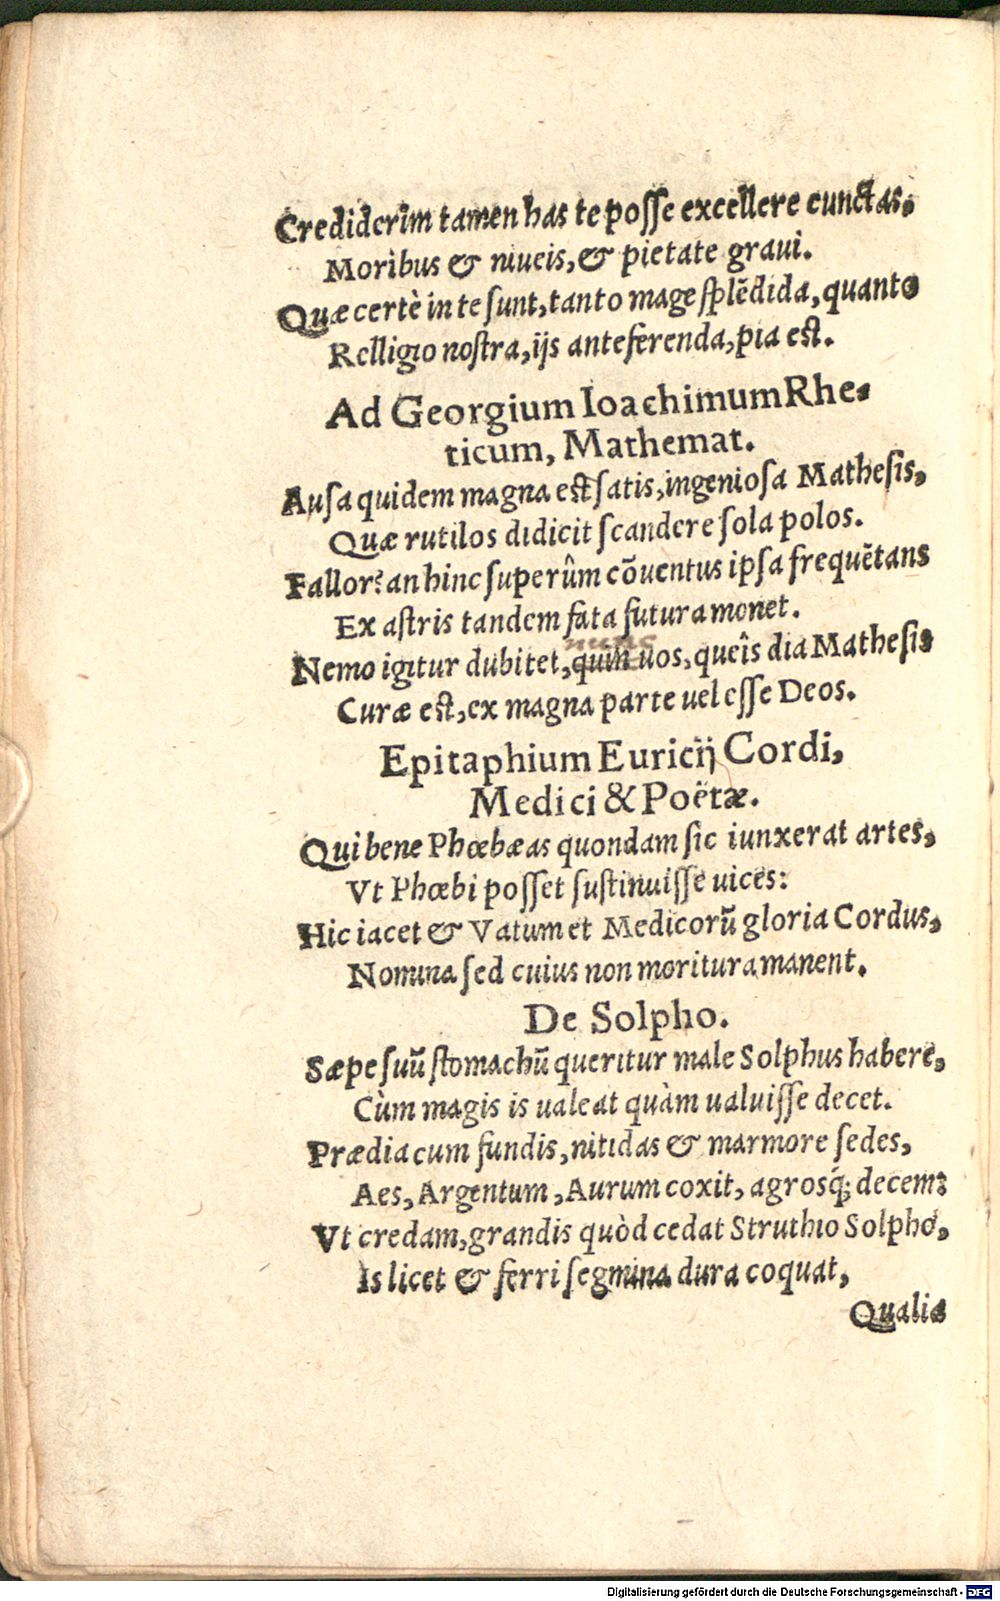 Crediderim tamen has te posse excellere cunctas,
Moribus & niueis, & pietate graui.
Quæ certè in te sunt, tanto mage splẽdida, quanto
Relligio nostra, ijs anteferenda, pia est.
Ad Georgium Ioachimum Rhe-
ticum, Mathemat.
Ausa quidem magna est satis, ingeniosa Mathesis,
Quæ rutilos didicit scandere sola polos.
Fallor? an hinc superûm cõuentus ipsa frequẽtans
Ex astris tandem fata futura monet.
nunc
Nemo igitur dubitet, quin uos, queîs dia Mathesis
Curæ est, ex magna parte uel esse Deos.
Epitaphium Euricij Cordi,
Medici & Poëtæ.
Qui bene Phœbæas quondam sic iunxerat artes,
Vt Phœbi posset sustinuisse uices:
Hic iacet & Vatum et Medicorũ gloria Cordus,
Nomina sed cuius non moritura manent.
De Solpho.
Sæpe suũ stomachũ queritur male Solphus habere,
Cùm magis is ualeat quàm ualuisse decet.
Prædia cum fundis, nitidas & marmore sedes,
Aes, Argentum, Aurum coxit, agrosq́; decem:
Vt credam, grandis quòd cedat Struthio Solpho,
Is licet & ferri segmina dura coquat,
Qualia
Digitalisierung gefördert durch die Deutsche Forschungsgemeinschaft - DFG